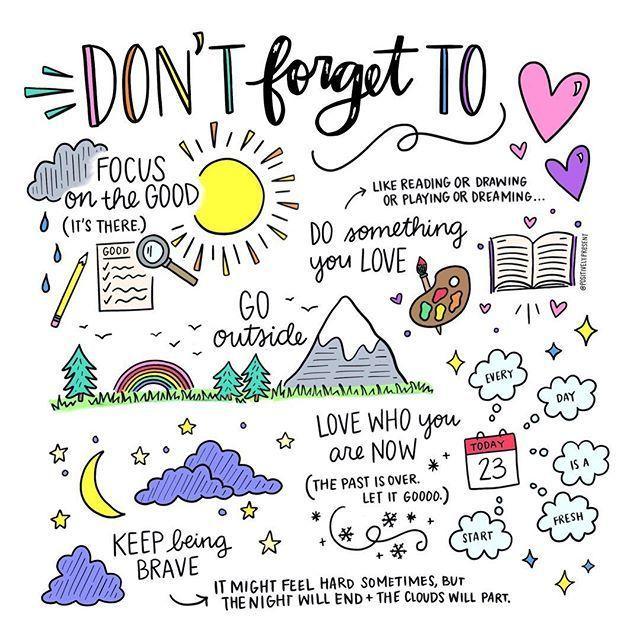 DON'T forget TO
FOCUS
on the GOOD
(IT'S THERE.)
GOOD
LIKE READING OR DRAWING
OR PLAYING OR DREAMING...
DO something
you LOVE
@POSITIVELYPRESENT
GO
outside
LOVE WHO you
are NOW
(THE PAST IS OVER.
LET IT GOOOO.)
TODAY
23
EVERY
DAY
IS A
FRESH
START
KEEP being
BRAVE
IT MIGHT FEEL HARD SOMETIMES, BUT
THE NIGHT WILL END + THE CLOUDS WILL PART.